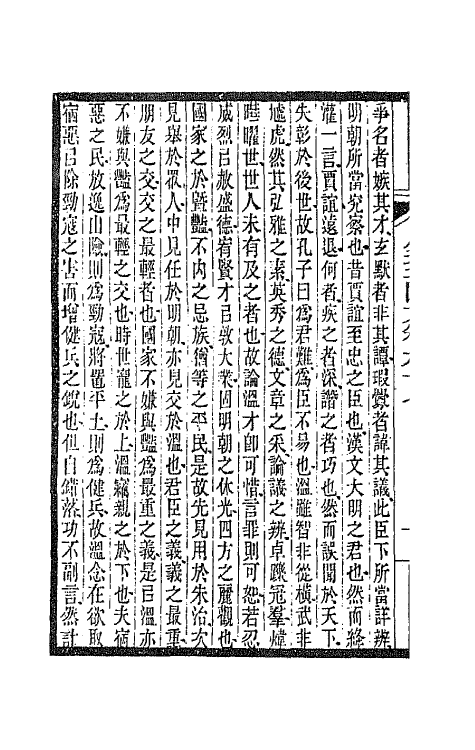 爭名者嫉其才玄默者非其譚瑕釁者諱其議此臣下所當詳辨
明朝所當究察也昔賈誼至忠之臣也漢文大明之君也然而絳
灌一言賈誼遠退何者疾之者深譖之者巧也然而誤聞於天下
失彰於後世故孔子曰爲君難爲臣不易也溫雖智非從橫武非
虓虎然其弘雅之素英秀之德文章之采論議之辨卓躒冠羣煒
曄曜世世人未有及之者也故論溫才卽可惜言罪則可恕若忍
威烈㠯赦盛德宥賢才㠯敦大業固明朝之休光四方之麗觀也
國家之於暨豔不內之忌族猶等之平民是故先見用於朱治次
見舉於眾人中見任於明朝亦見交於溫也君臣之義義之最重
朋友之交交之最輕者也國家不嫌與豔爲最重之義是㠯溫亦
不嫌與豔爲最輕之交也時世寵之於上溫竊親之於下也夫宿
惡之民放逸山險則爲勁寇將置平土則爲健兵故溫念在欲取
宿惡㠯除勁寇之害而增健兵之銳也但自錯落功不副言然計